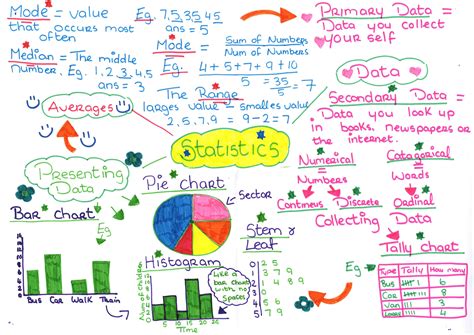 Mode = value
that occurs most
often
Eg. 7,5,35,45
ans = 5
Median = The middle
number. Eg. 1,2,3,4,5
ans = 3
Mode = Sum of Numbers
Num of Numbers
Eg. 4+5+7+9+10
5
= 35 = 7
5
The Range
largers value - smalles value
2,5,7,9 = 9-2=7
Averages
Primary Data =
Data you collect
your self
Data
Secondary Data =
Data you look up
in books, newspapers or
the internet.
Statistics
Numerical
=
Numbers
Catagorical
=
Words
Contineus
Discrete
Ordinal
Collecting Data
Tally chart
Eg
Type Tally How many
Bus 6
Car 8
Van 3
Lores 4
Presenting
Data
Bar chart
Eg
Bus Car Walk Train
Pie chart
Sector
Histogram
5 10 15 20 25
Time
Like a
bar chart
with no
spaces
Stem &
Leaf
0 2 5
1 3 7 9
2
3 4 7 8 9
4 1
5